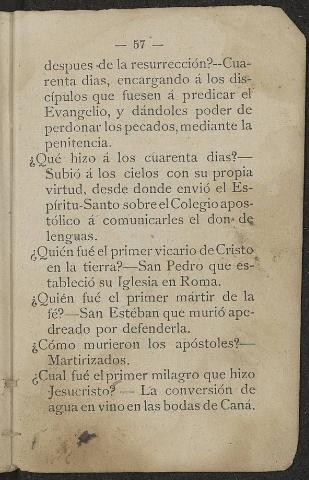 — 57 —
despues de la resurrección?--Cua-
renta dias, encargando á los dis-
cípulos que fuesen á predicar el
Evangelio, y dándoles poder de
perdonar los pecados, mediante la
penitencia.
¿Qué hizo á los cuarenta dias?—
Subió á los cielos con su propia
virtud, desde donde envió el Es-
píritu-Santo sobre el Colegio apos-
tólico á comunicarles el don de
lenguas.
¿Quién fué el primer vicario de Cristo
en la tierra?—San Pedro que es-
tableció su Iglesia en Roma.
¿Quién fué el primer mártir de la
fé?—San Estéban que murió ape-
dreado por defenderla.
¿Cómo murieron los apóstoles?—
Martirizados.
¿Cual fué el primer milagro que hizo
Jesucristo? — La conversión de
agua en vino en las bodas de Caná.